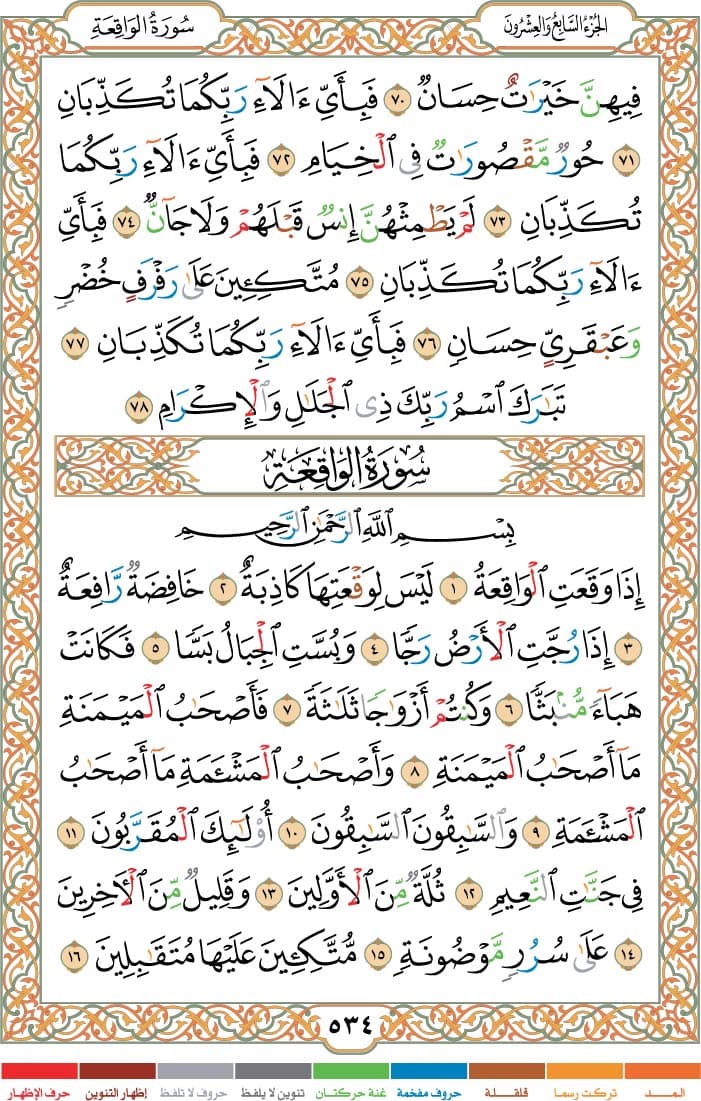 الجزء السابع والعشرون
سورة الواقعة
فِيهِنَّ خَيْرَاتٌ حِسَانٌ ٧٠ فَبِأَيِّ ءَالَآءِ رَبِّكُمَا تُكَذِّبَانِ
٧١ حُورٌ مَّقْصُورَاتٌ فِي الْخِيَامِ ٧٢ فَبِأَيِّ ءَالَآءِ رَبِّكُمَا
تُكَذِّبَانِ ٧٣ لَمْ يَطْمِثْهُنَّ إِنسٌ قَبْلَهُمْ وَلَا جَآنٌّ ٧٤ فَبِأَيِّ
ءَالَآءِ رَبِّكُمَا تُكَذِّبَانِ ٧٥ مُتَّكِئِينَ عَلَى رَفْرَفٍ خُضْرٍ
وَعَبْقَرِيٍّ حِسَانٍ ٧٦ فَبِأَيِّ ءَالَآءِ رَبِّكُمَا تُكَذِّبَانِ ٧٧
تَبَارَكَ اسْمُ رَبِّكَ ذِي الْجَلَالِ وَالْإِكْرَامِ ٧٨
سُورَةُ الْوَاقِعَةِ
بِسْمِ اللَّهِ الرَّحْمَٰنِ الرَّحِيمِ
إِذَا وَقَعَتِ الْوَاقِعَةُ ١ لَيْسَ لِوَقْعَتِهَا كَاذِبَةٌ ٢ خَافِضَةٌ رَّافِعَةٌ
٣ إِذَا رُجَّتِ الْأَرْضُ رَجًّا ٤ وَبُسَّتِ الْجِبَالُ بَسًّا ٥ فَكَانَتْ
هَبَآءً مُّنۢبَثًّا ٦ وَكُنتُمْ أَزْوَاجًا ثَلَاثَةً ٧ فَأَصْحَابُ الْمَيْمَنَةِ
مَآ أَصْحَابُ الْمَيْمَنَةِ ٨ وَأَصْحَابُ الْمَشْـَٔمَةِ مَآ أَصْحَابُ
الْمَشْـَٔمَةِ ٩ وَالسَّابِقُونَ السَّابِقُونَ ١٠ أُولَٰٓئِكَ الْمُقَرَّبُونَ ١١
فِي جَنَّاتِ النَّعِيمِ ١٢ ثُلَّةٌ مِّنَ الْأَوَّلِينَ ١٣ وَقَلِيلٌ مِّنَ الْآخِرِينَ
١٤ عَلَى سُرُرٍ مَّوْضُونَةٍ ١٥ مُّتَّكِئِينَ عَلَيْهَا مُتَقَابِلِينَ ١٦
٥٣٤
المـــد
تركت رسما
قلقـلـة
حروف مفخمة
غنة حركتان
تنوين لا يلفظ
حروف لا تلفظ
إظهار التنوين
حرف الإظهار